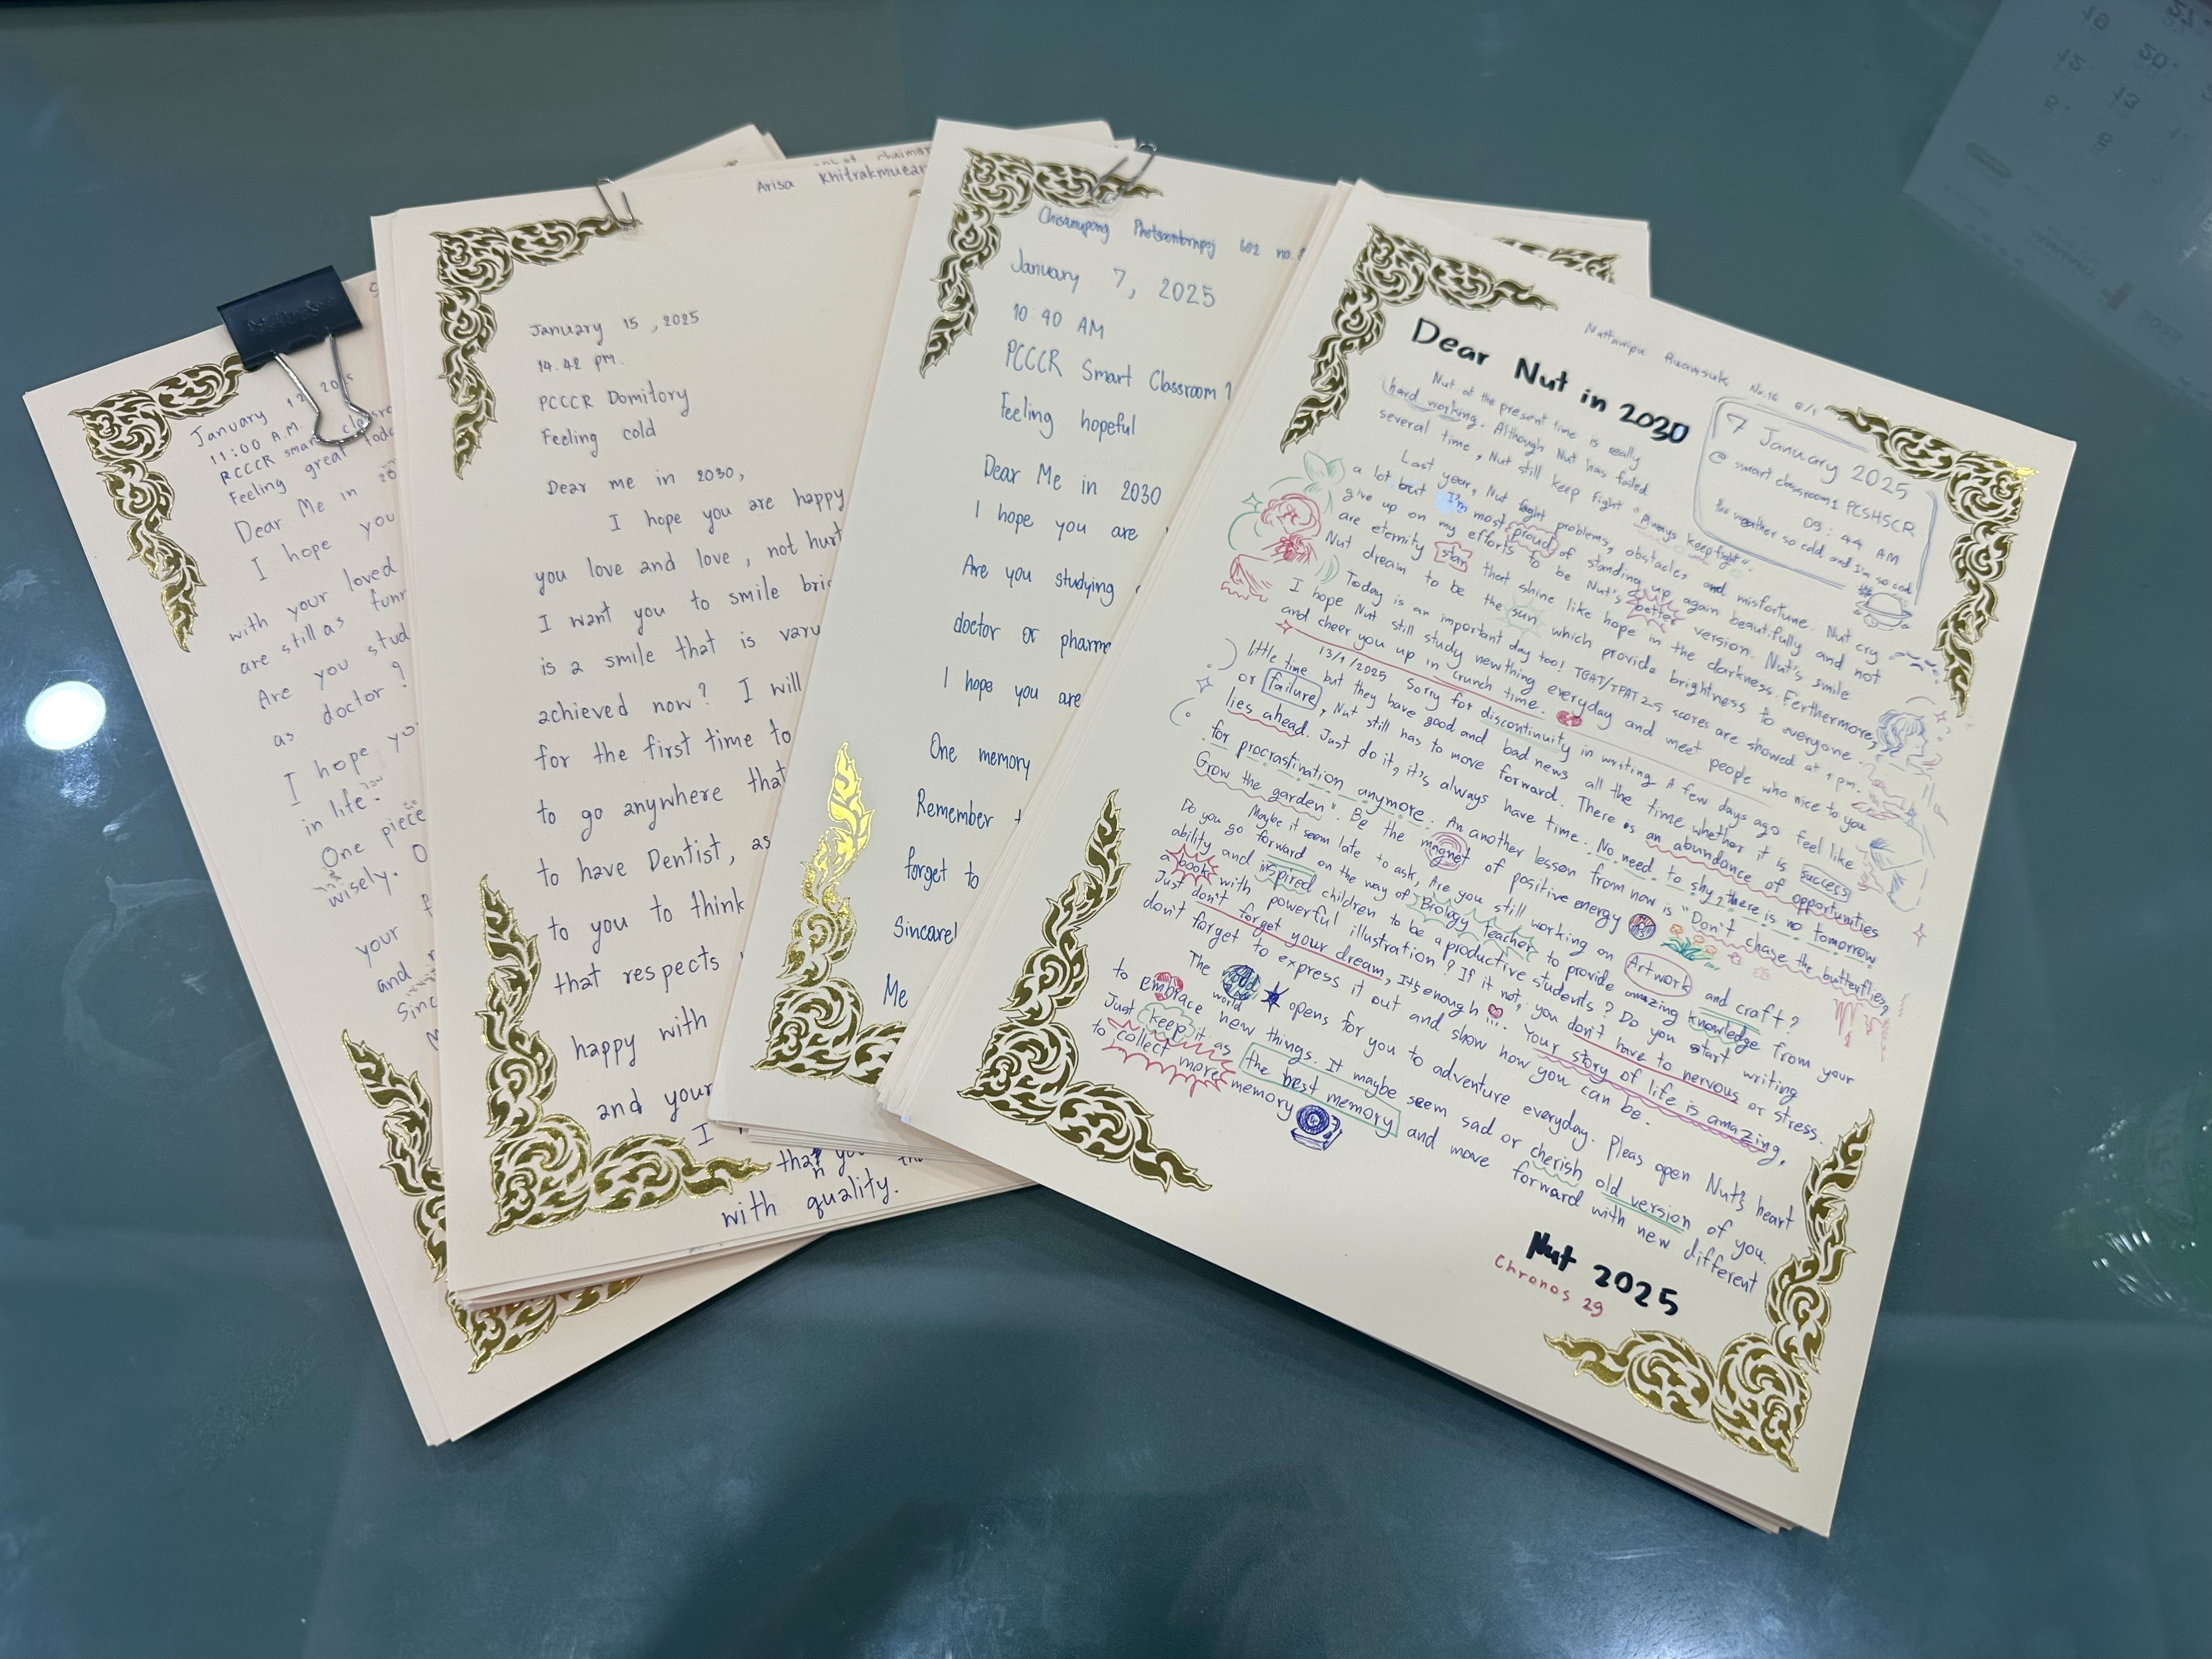 January 12
11:00 A.M.
Feeling great
Dear Me in
I hope you
with your loved
are still as
Are you stud
as doctor ?
I hope yo
in life.
One piece
wisely. O
your
and
Sinc
Arisa Khitrakmuean
January 15 , 2025
14.42 pm.
PCCCR Domitory
Feeling cold
Dear me in 2030,
I hope you are happy
you love and love , not hurt
I want you to smile bri
is a smile that is varu
achieved now? I will
for the first time to
to go anywhere that
to have Dentist, as
to you to think
that respects
happy with
and your
I
that you
with quality.
602 no.
January 7, 2025
10:40 AM
PCCCR Smart Classroom 1
Feeling hopeful
Dear Me in 2030
I hope you are
Are you studying
doctor or pharma
I hope you are
One memory
Remember
forget to
Sincerel
Me
No.16 6/1
Dear Nut in 2030
7 January 2025
@ smart classroom1 PCSHSCR
09:44 AM
the weather so cold and I'm so cold
Nut at the present time is really
hard working. Although Nut has failed
several time, Nut still keep fight "Always keep fight".
Last year, Nut fight problems, obstacles and misfortune. Nut cry
a lot but I'm most proud of standing up again beautifully and not
give up on my efforts to be Nut's better version. Nut's smile
are eternity star that shine like hope in the darkness. Ferthermore,
Nut dream to be the sun which provide brightness to everyone.
Today is an important day too! TGAT/TPAT 2-5 scores are showed at 1 pm.
I hope Nut still study newthing everyday and meet people who nice to you
and cheer you up in crunch time.
13/1/2025 Sorry for discontinuity in writing A few days ago feel like
little time but they have good and bad news all the time whether it is success
or failure, Nut still has to move forward. There is an abundance of opportunities
lies ahead. Just do it, it's always have time. No need to shy, there is no tomorrow
for procrastination anymore. An another lesson from now is "Don't chase the butterflies,
Grow the garden". Be the magnet of positive energy
Maybe it seem late to ask, Are you still working on Artwork and craft?
Do you go forward on the way of Biology teacher to provide amazing knowledge from your
ability and inspired children to be a productive students? Do you start writing
a book with powerful illustration? If it not, you don't have to nervous or stress.
Just don't forget your dream, It's enough !!! Your story of life is amazing,
don't forget to express it out and show how you can be.
The world opens for you to adventure everyday. Pleas open Nut's heart
world
to embrace new things. It maybe seem sad or cherish old version of you.
Just keep it as the best memory and move forward with new different
to collect more memory
Nut 2025
Chronos 29